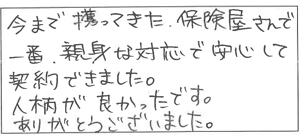 今まで携ってきた、保険屋さんで
一番、親身な対応で安心して
契約できました。
人柄が良かったです。
ありがとうございました。